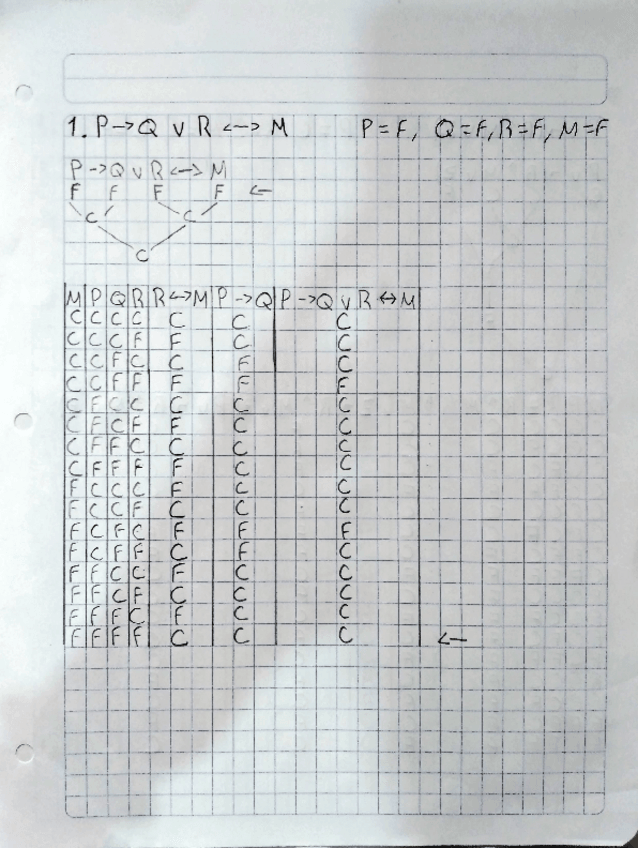 1. P->Q v R <-> M P=F, Q=F, R=F, M=F
P->Q v R <-> M
F F F F <-
C C
C
M P Q R R<->M P->Q P->Q v R <-> M
C C C C C C C
C C C F F C C
C C F C C F C
C C F F F F F
C F C C C C C
C F C F F C C
C F F C C C C
C F F F F C C
F C C C F C C
F C C F C C C
F C F C F F F
F C F F C F C
F F C C F C C
F F C F C C C
F F F C F C C
F F F F C C C <-